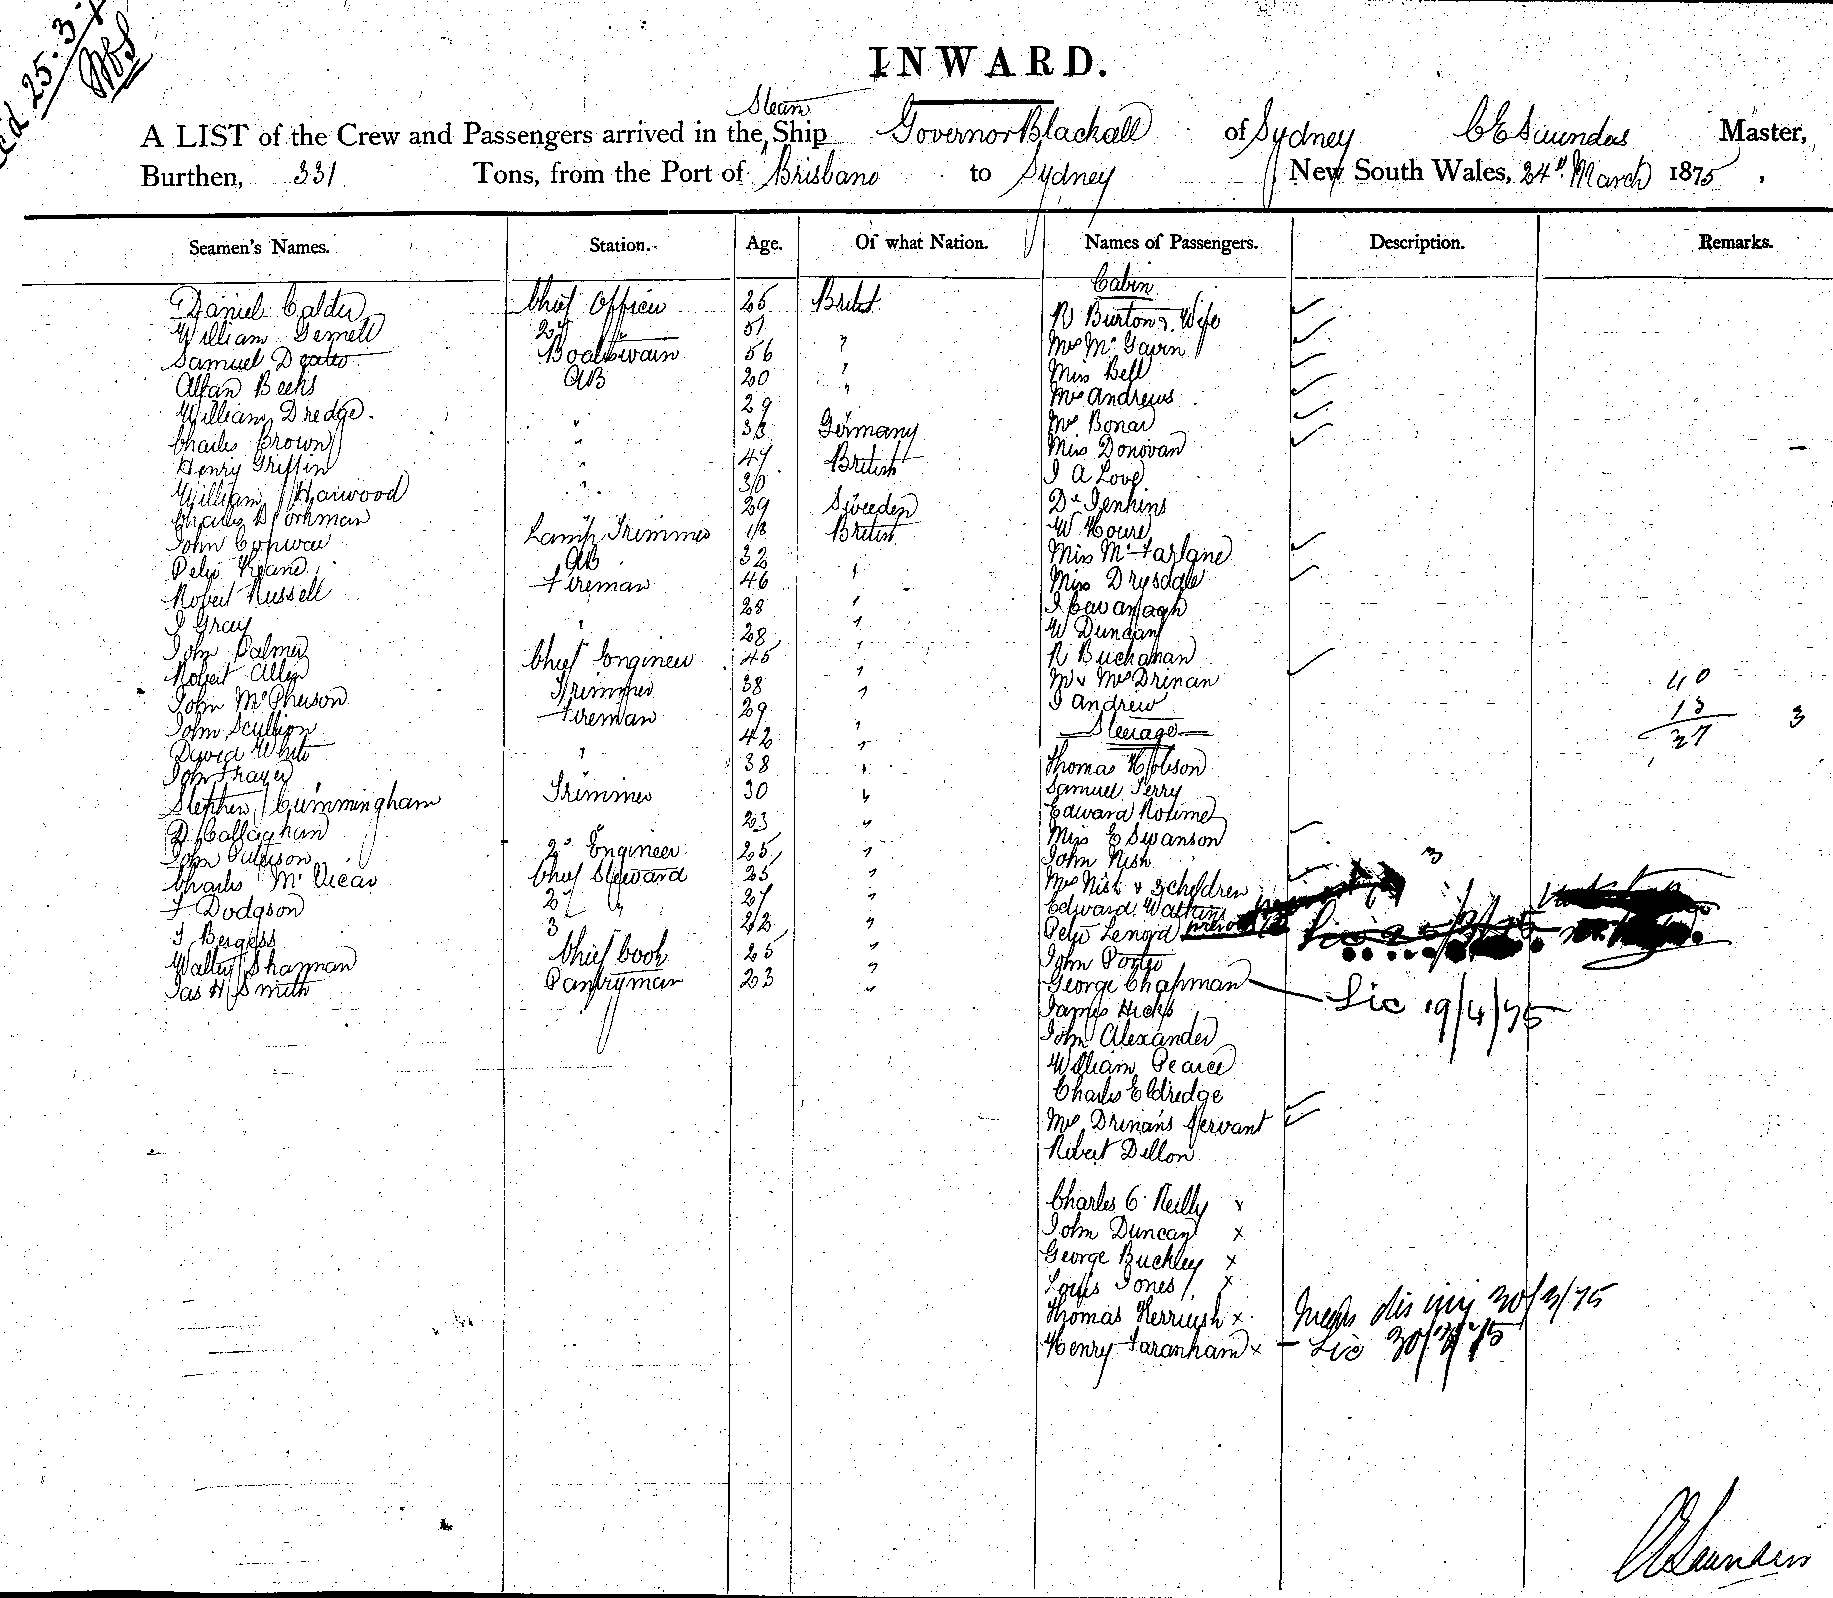 25.3.
INWARD.
Steam
A LIST of the Crew and Passengers arrived in the Ship Governor Blackall of Sydney C E Saunders Master,
Burthen, 331 Tons, from the Port of Brisbane to Sydney New South Wales, 24th March 1875,
Seamen's Names. Station. Age. Of what Nation. Names of Passengers. Description. Remarks.
Cabin
Daniel Calder Chief Officer 25 British R Burton & Wife
William 2d 51 " Mrs McGavin
Samuel Boatswain 56 " Miss Bell
Allan Beeks AB 20 " Mrs Andrews
William Dredge. 29 Mrs Bonar
Charles Brown " 38 Germany Miss Donovan
Henry Griffin " 47 British J A Love
William Harwood " 30 Dr Jenkins
Charles Workman " 29 Sweeden W Houre
John Conway Lamp Trimmer 18 British Miss McFarlane
Peter Keane AB 32 " Miss Drysdale
Robert Russell Fireman 46 " J Cavanagh
J Gray " 28 " W Duncan
John Palmer 28 " R Buchanan
Robert Allen Chief Engineer 45 " Mr & Mrs Drinan
John McPherson Trimmer 38 " J Andrew
John Scullion Fireman 29 " Steerage
David White " 42 " Thomas Hobson
John Frayer " 38 " Samuel Perry
Stephen Cummingham Trimmer 30 " Edward
D Callaghan " 23 " Miss E Swanson
John 2d Engineer 25 " John Nish
Charles McVicar Chief Steward 25 " Mrs Nish & 3 children 3
F Dodgson 2d " 27 " Edward Watkins
J Bergess 3 22 " Peter Lenord
Walter Sharman Chief Cook 25 " John Porter
Jas H Smith Pantryman 23 " George Chapman Lic 19/4/75
James Hicks
John Alexander
William Pearce
Charles Eldredge
Mrs Drinan's Servant
Robert Dillon
40
13
27 3
Charles O Reilly x
John Duncan x
George Buckley x
Louis Jones x
Thomas Kerriush x 30/3/75
Henry Faranham x - Lic 30/3/75
C E Saunders